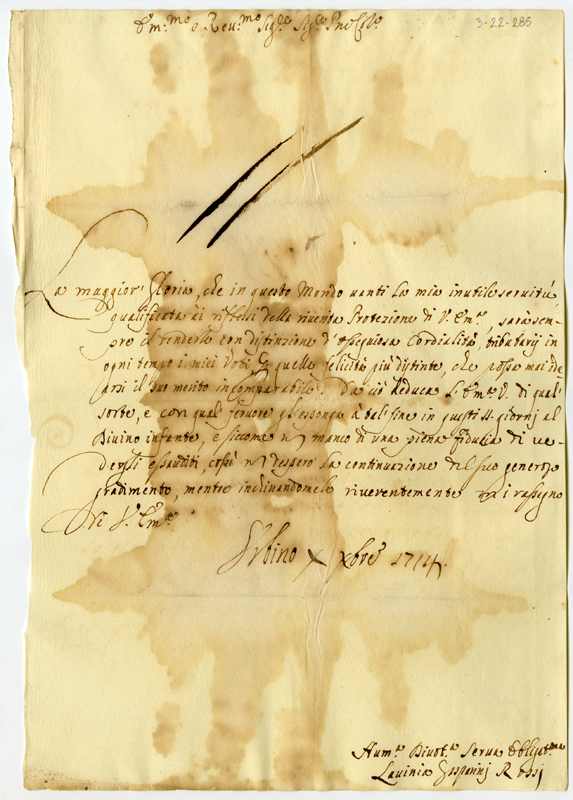 Em.mo e Reu.mo Sig.re Sig.re Pne Col.o
3-22-285
La maggior' Gloria, che in questo Mondo uanti la mia inutile seruitù,
qualificata ai riflessi della riuerita Protezione di V. Em.a, sarà sem-
pre il renderle con distinzione d'ossequiosa Cordialità, tributarij in
ogni tempo i miei Voti p quelle felicità più distinte, che possa mai de
sarsi il suo merito incomparabile. Da ciò deduca l'Em.a V. di qual
sorte, e con qual feruore gl'esponga à tal fine in questi SS. giornj al
Diuino infante, e siccome ñ manco di una piena fiducia di ue-
dersi essauditi, così ñ despero la continuazione del suo generoso
gradimento, mentre inchinandomele riuerentemente mi rassegno
Di V. Em.a
Vrbino X Xbre 1714.
Hum.a Diuot.a Serua Obligat.ma
Lauinia Gasparinj Rossj